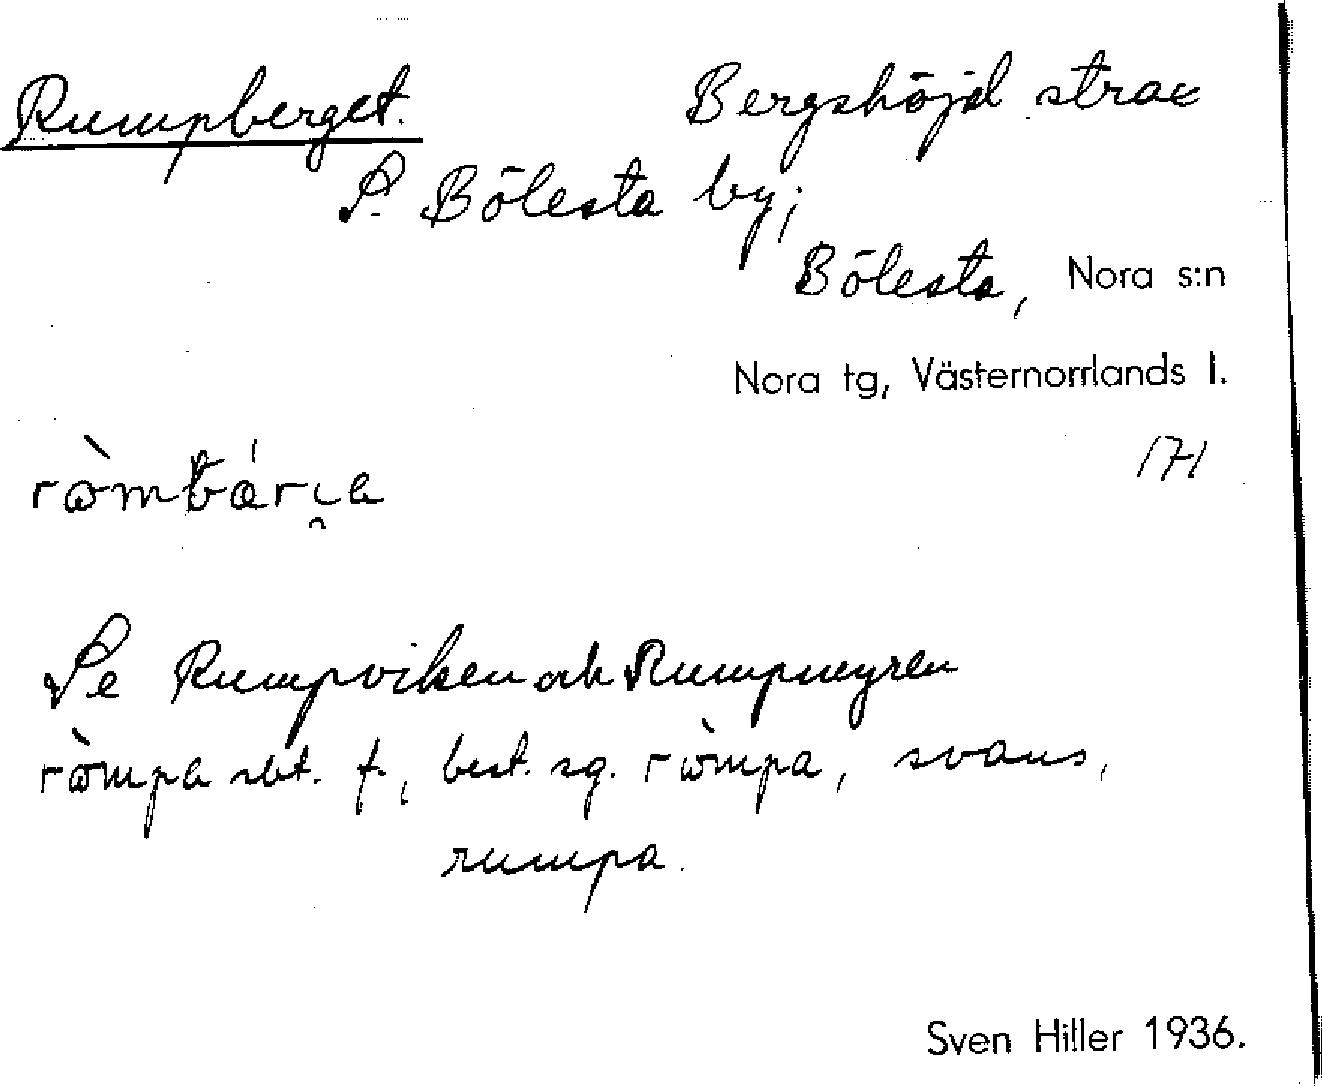 Rumpberget. Bergshöjd strax
S. Bölesta by;
Bölesta, Nora s:n
Nora tg, Västernorrlands l.
171
Se Rumpviken och Rumpmyren
ròmpa sbt. f., best. sg. ròmpa, svans,
rumpa.
Sven Hiller 1936.